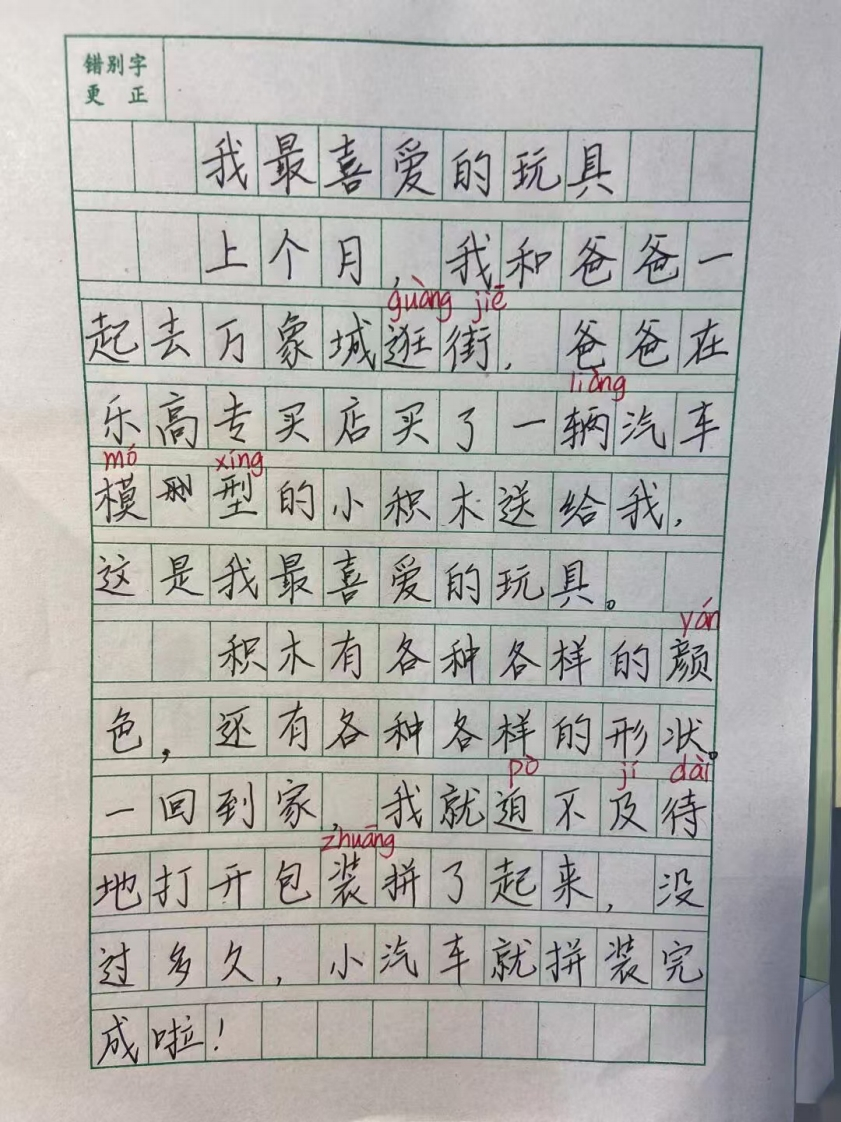 错别字
更 正
我最喜爱的玩具
上个月，我和爸爸一
guàng jiē
起去万象城逛街，爸爸在
liàng
乐高专买店买了一辆汽车
mó xíng
模型的小积木送给我，
这是我最喜爱的玩具。
yán
积木有各种各样的颜
色，还有各种各样的形状。
pò jí dài
一回到家，我就迫不及待
zhuāng
地打开包装拼了起来，没
过多久，小汽车就拼装完
成啦！